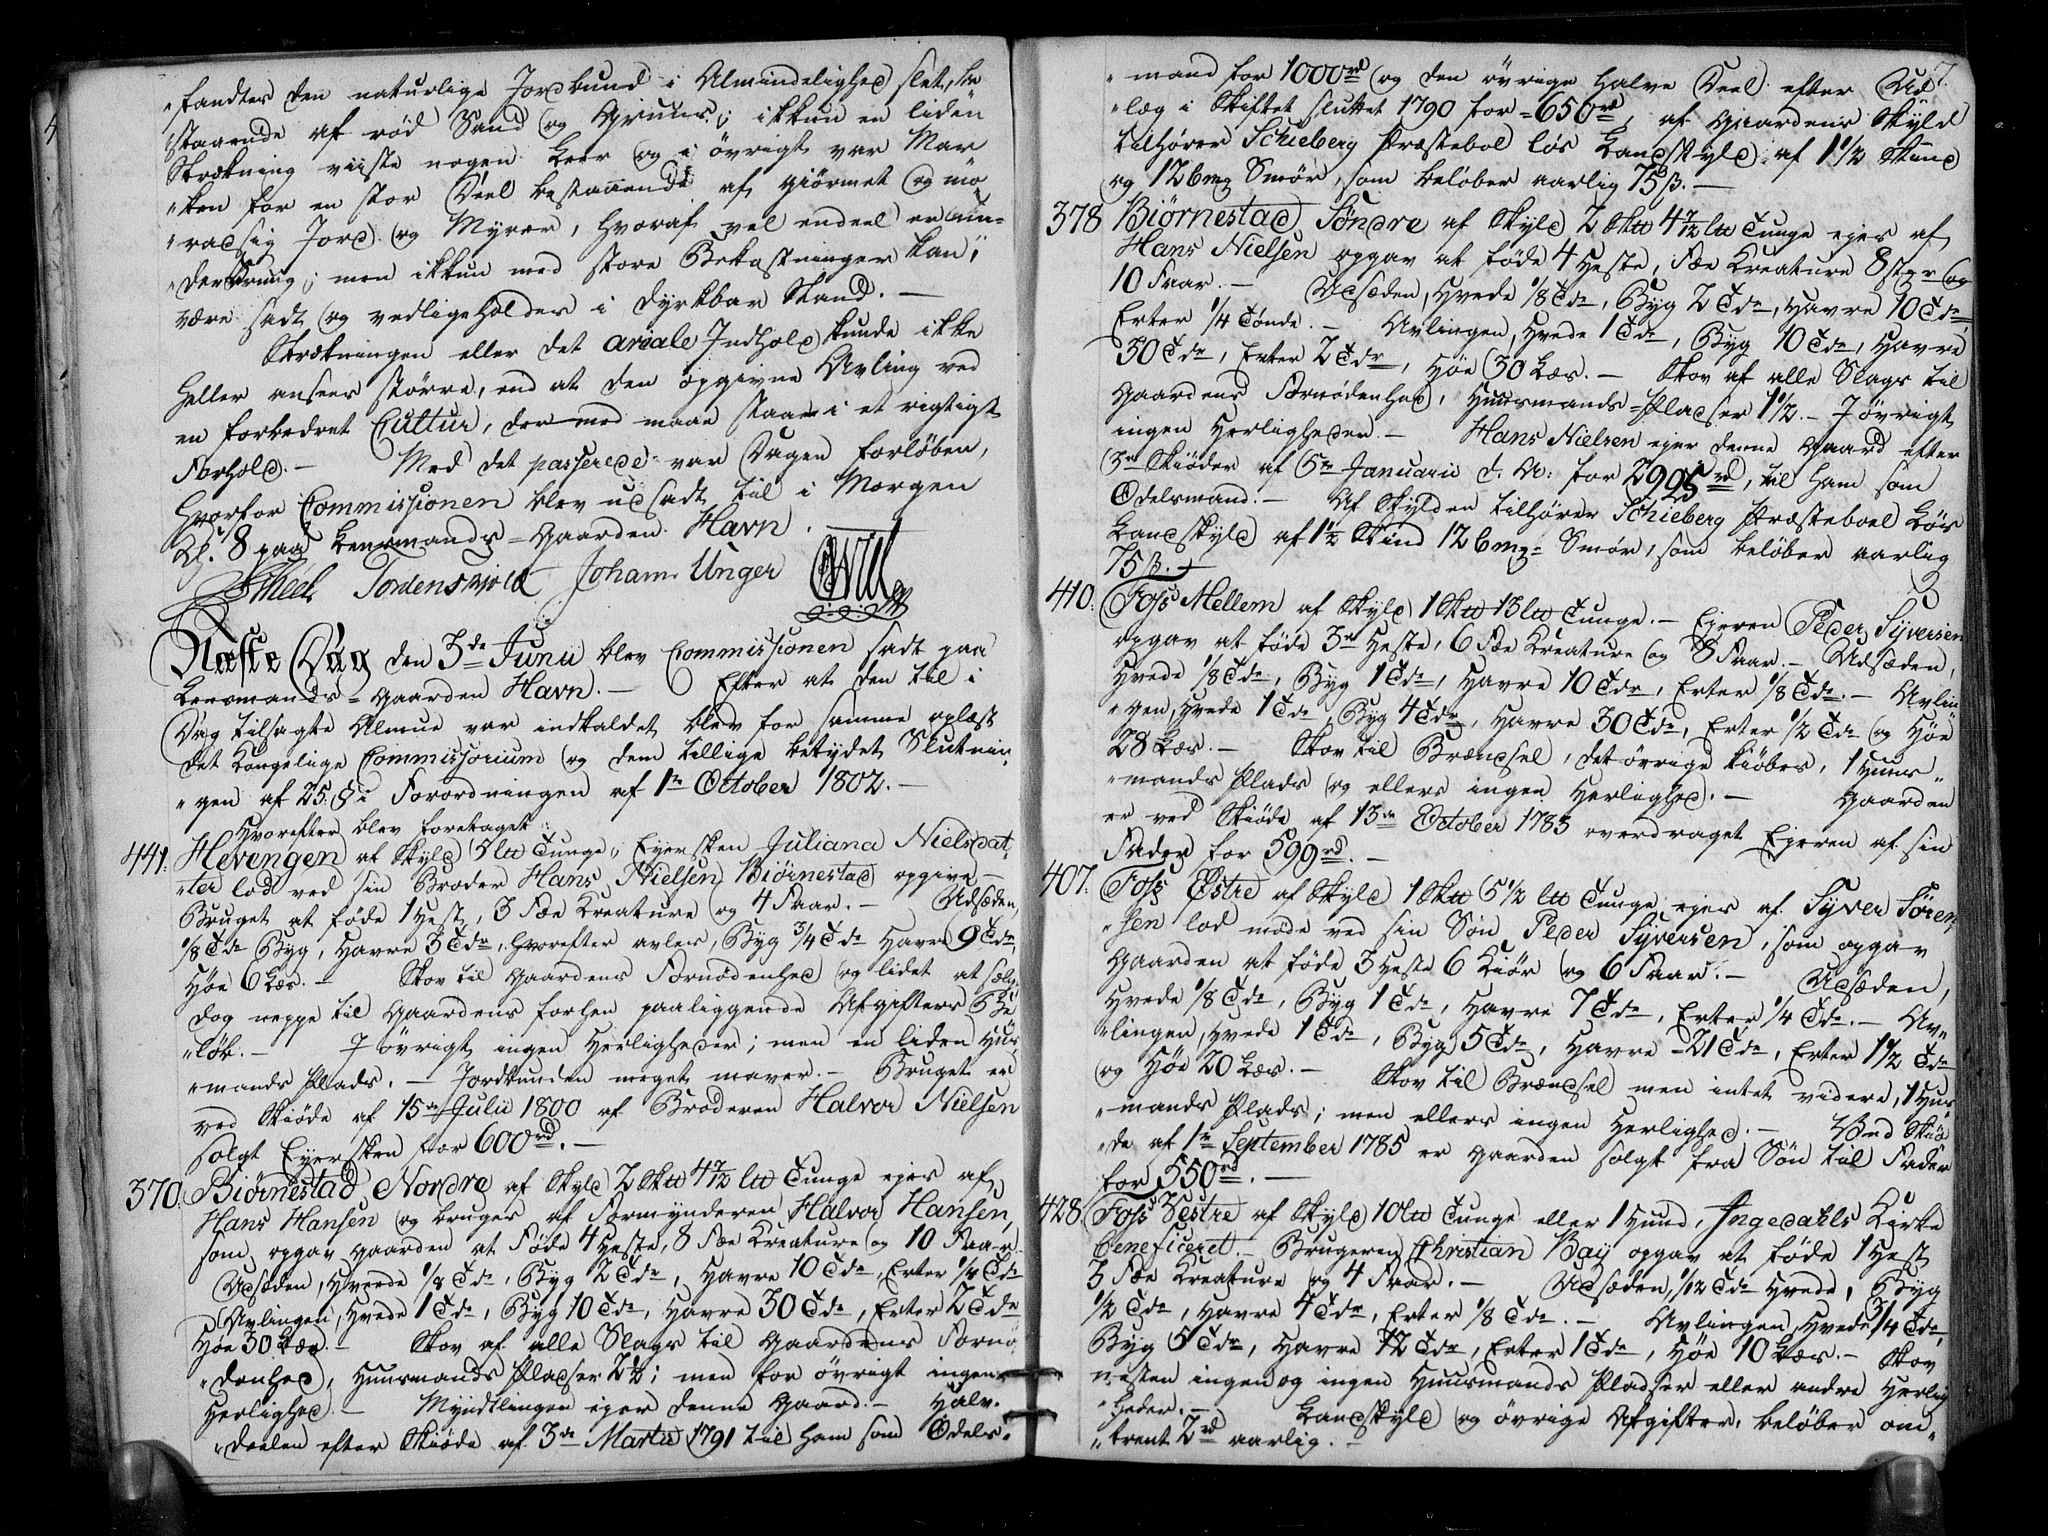 "fandtes den naturlige Jordbund i Almindelighed slet, be
"staaende af rød Sand og Gruus; ikkun en liden
Strækning viiste nogen Leer og i øvrigt var Mar
"ken for en stor Deel bestaaende af giørmet og mo
"radsig Jord og Myrer, hvoraf vel endeel er un-
men ikkun med store Bekostninger kan
være sadt og vedligeholdes i dyrkbar Stand. —
Strækningen eller det areale Indhold kunde ikke
heller ansees større, end at den opgivne Avling ved
en forbedret Cultur, dermed maae staae i et rigtigt
Forhold. — Med det passerede var Dagen forløben,
hvorfor Commissionen blev udsadt til i Morgen
Kl. 8 paa Lensmands-Gaarden Havn.
Tordenskjold Johan Unger OWill
Næste Dag den 3de Junii blev Commissionen sadt paa
Lensmands-Gaarden Havn. — Efter at den til i
Dag tilsagte Almue var indkaldet blev for samme oplæst
det Kongelige Commissorium og dem tillige betydet Slutnin
"gen af 25. § i Forordningen af 1te October 1802. —
Hvorefter blev foretaget:
441. Hevengen af Skyld 5 l℔ Tunge, Eyersken Juliana Nielsdat-
"ter lod ved sin Broder Hans Nielsen Biørnestad opgive —
Bruget at føde 1 Hest, 3 Fæe Kreature og 4 Faar. — Udsæden,
1/8 Tde Byg, Havre 3 Tdr, hvorefter avles, Byg 3/4 Tde Havre 9 Tdr,
Høe 6 Læs. — Skov til Gaardens Fornødenhed og lidet at sælge
dog neppe til Gaardens forhen paaliggende Afgifters Be
"løb. — I øvrigt ingen Herligheder; men en liden Huus
"mands Plads. — Jordbunden meget maver. — Bruget er
ved Skiøde af 15de Julii 1800 af Broderen Halvor Nielsen
solgt Eyersken for 600 rd. —
370. Biørnestad Nordre af Skyld 2 Sk℔ 4 1/2 l℔ Tunge ejes af
Hans Hansen og bruges af Formynderen Halvor Hansen,
som opgav Gaarden at Føde 4 Heste, 8 Fæe Kreature og 10 Faar
Udsæden, Hvede 1/8 Tde, Byg 2 Tdr, Havre 10 Tdr, Erter 1/4 Tde
Avlingen, Hvede 1 Tde, Byg 10 Tdr, Havre 30 Tdr, Erter 2 Tdr
Høe 30 Læs. — Skov af alle Slags til Gaardens Fornø
"denhed, Huusmands Pladser 2 1/2; men for øvrigt ingen
Herlighed. — Myndtlingen ejer denne Gaard. — Halv-
"deelen efter Skiøde af 3de Martii 1791 til ham som Odels-
7.
"mand for 1000 rd og den øvrige halve Deel efter Ud
"læg i Skiftet sluttet 1790 for 650 rd, af Gaardens Skyld
tilhører Schieberg Præstebol løs Landskyld af 1 1/2 Skind
og 12 bmg Smør, som beløber aarlig 75 ß. —
378 Biørnestad Søndre af Skyld 2 Sk℔ 4 1/2 l℔ Tunge ejes af
Hans Nielsen opgav at føde 4 Heste, Fæe Kreature 8 stkr og
10 Faar. — Udsæden, Hvede 1/8 Tde, Byg 2 Tdr, Havre 10 Tdr
Erter 1/4 Tønde. — Avlingen, Hvede 1 Tde, Byg 10 Tdr, Havre
30 Tdr, Erter 2 Tdr, Høe 30 Læs. — Skov af alle Slags til
Gaardens Fornødenhed, Huusmands-Pladser 1 1/2. — I øvrigt
ingen Herligheder. — Hans Nielsen ejer denne Gaard efter
3de Skiøder af 5te Januarii d. A. for 2995 rd, til ham som
Odelsmand. — Af Skylden tilhører Schieberg Præsteboel Løs
Landskyld af 1 1/2 Skind 12 bmg Smør, som beløber aarlig
75 ß. —
410. Foss Mellem af Skyld 1 Sk℔ 13 l℔ Tunge. — Ejeren Peder Syversen
opgav at føde 3de Heste, 6 Fæe Kreature og 8 Faar. — Udsæden,
Hvede 1/8 Tde, Byg 1 Tde, Havre 10 Tdr, Erter 1/8 Tde. — Avlin
"gen, Hvede 1 Tde, Byg 4 Tdr, Havre 30 Tdr, Erter 1/2 Tde og Høe
28 Læs. — Skov til Brændsel, det øvrige kiøbes, 1 Huus-
"mands Plads og ellers ingen Herlighed. — Gaarden
er ved Skiøde af 13de October 1783 overdraget Ejeren af sin
Fader for 599 rd. —
407. Foss Østre af Skyld 1 Sk℔ 5 1/2 l℔ Tunge ejes af Syver Søren
"sen lod møde ved sin Søn Peder Syversen, som opgav
Gaarden at føde 3 Heste 6 Kiør og 6 Faar. — Udsæden,
Hvede 1/8 Tde, Byg 1 Tde, Havre 7 Tdr, Erter 1/4 Tde. — Av-
"lingen, Hvede 1 Tde, Byg 5 Tdr, Havre 21 Tdr, Erter 1 1/2 Tde
og Høe 20 Læs. — Skov til Brændsel men intet videre, 1 Huus
"mands Plads; men ellers ingen Herlighed. — Ved Skiø
"de af 1te September 1785 er Gaarden solgt fra Søn til Fader
for 550 rd. —
428. Foss Vestre af Skyld 10 l℔ Tunge eller 1 Hund, Ingedahls Kirke
beneficeret. — Brugeren Christian Bay opgav at føde 1 Hest
3 Fæe Kreature og 4 Faar. — Udsæden, 1/12 Tde Hvede, Byg
1/2 Tde, Havre 4 Tdr, Erter 1/8 Tde. — Avlingen, Hvede 3/4 Tde,
Byg 5 Tdr, Havre 12 Tdr, Erter 1 Tde, Høe 10 Læs. — Skov
nesten ingen og ingen Huusmands Pladser eller andre Herlig
"heder. — Landskyld og øvrige Afgifter, beløber om-
"trent 2 rd aarlig. —